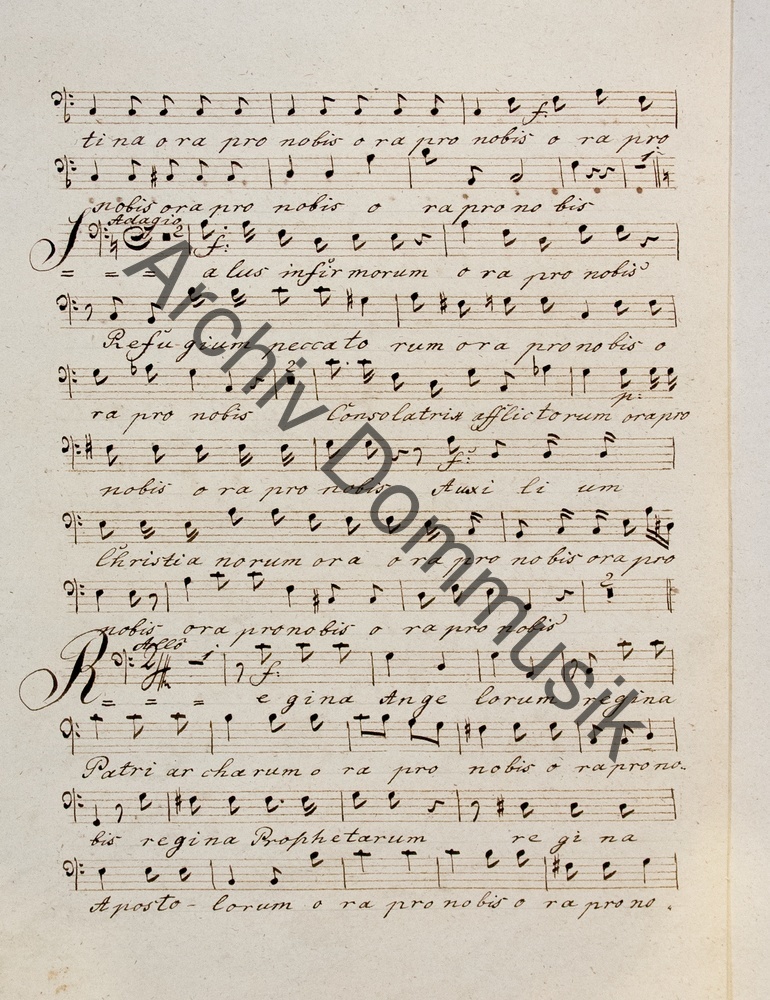 f.
ti na o ra pro nobis o ra pro nobis o ra pro
nobis ora pro nobis o ra pro no bis
Adagio
2
f:
S = = = alus infirmorum o ra pro nobis
Refu-gium peccato rum ora pro nobis o
2
p:
ra pro nobis Consolatrix afflictorum ora pro
f:
nobis o ra pro nobis Auxi li um
Christia norum ora o ra pro nobis ora pro
2
nobis ora pro nobis o ra pro nobis
Allo
1
f:
R = = = e gina Ange lorum regina
Patri ar charum o ra pro nobis o ra pro no-
bis regina Prophetarum re gi na
Aposto-lorum o ra pro nobis o ra pro no.
Archiv Dommusik